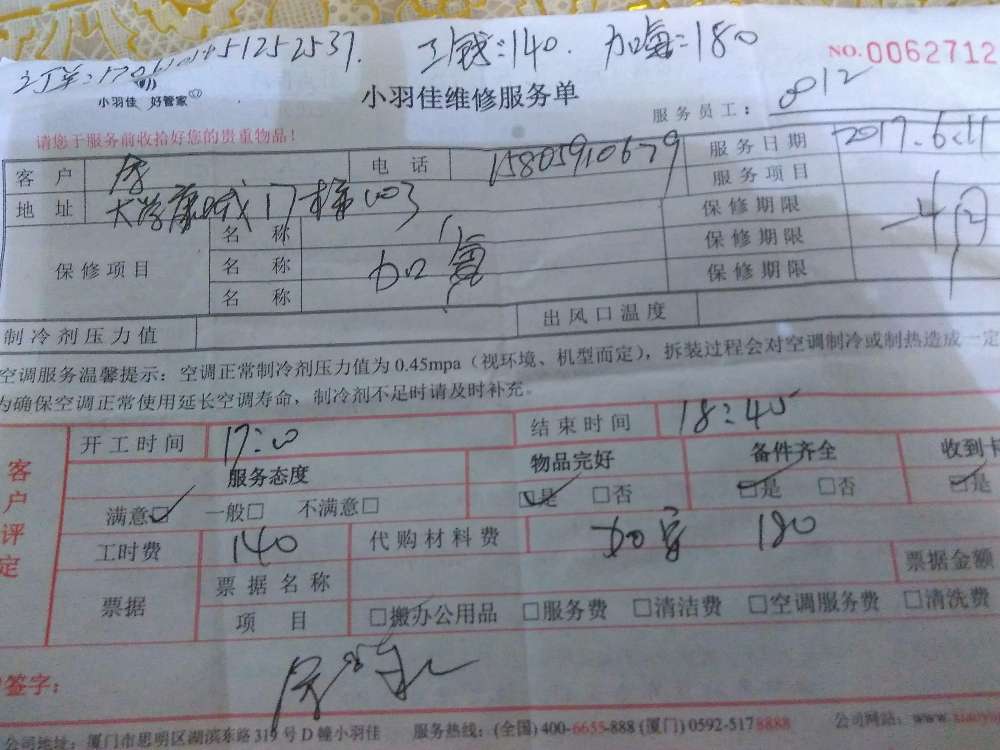 工钱:140. 加氟:180
NO.0062712
小羽佳 好管家
小羽佳维修服务单
服务员工: 8012
请您于服务前收拾好您的贵重物品!
客户 电话 15805910679 服务日期 2017.6.11
地址 17栋 服务项目
保修项目 名称 保修期限
名称 加氟 保修期限
名称 保修期限
制冷剂压力值 出风口温度
空调服务温馨提示:空调正常制冷剂压力值为0.45mpa(视环境、机型而定),拆装过程会对空调制冷或制热造成一定
为确保空调正常使用延长空调寿命,制冷剂不足时请及时补充。
客户评定
开工时间 17:0 结束时间 18:45
服务态度 物品完好 备件齐全 收到
满意□ 一般□ 不满意□ □是 □否 □是 □否 □是
工时费 140 代购材料费 180
票据 票据名称 票据金额
项目 □搬办公用品 □服务费 □清洁费 □空调服务费 □清洗费
签字:
公司地址:厦门市思明区湖滨东路319号D幢小羽佳 服务热线:(全国)400-6655-888 (厦门)0592-5178888 公司网站:www.xiaoyu